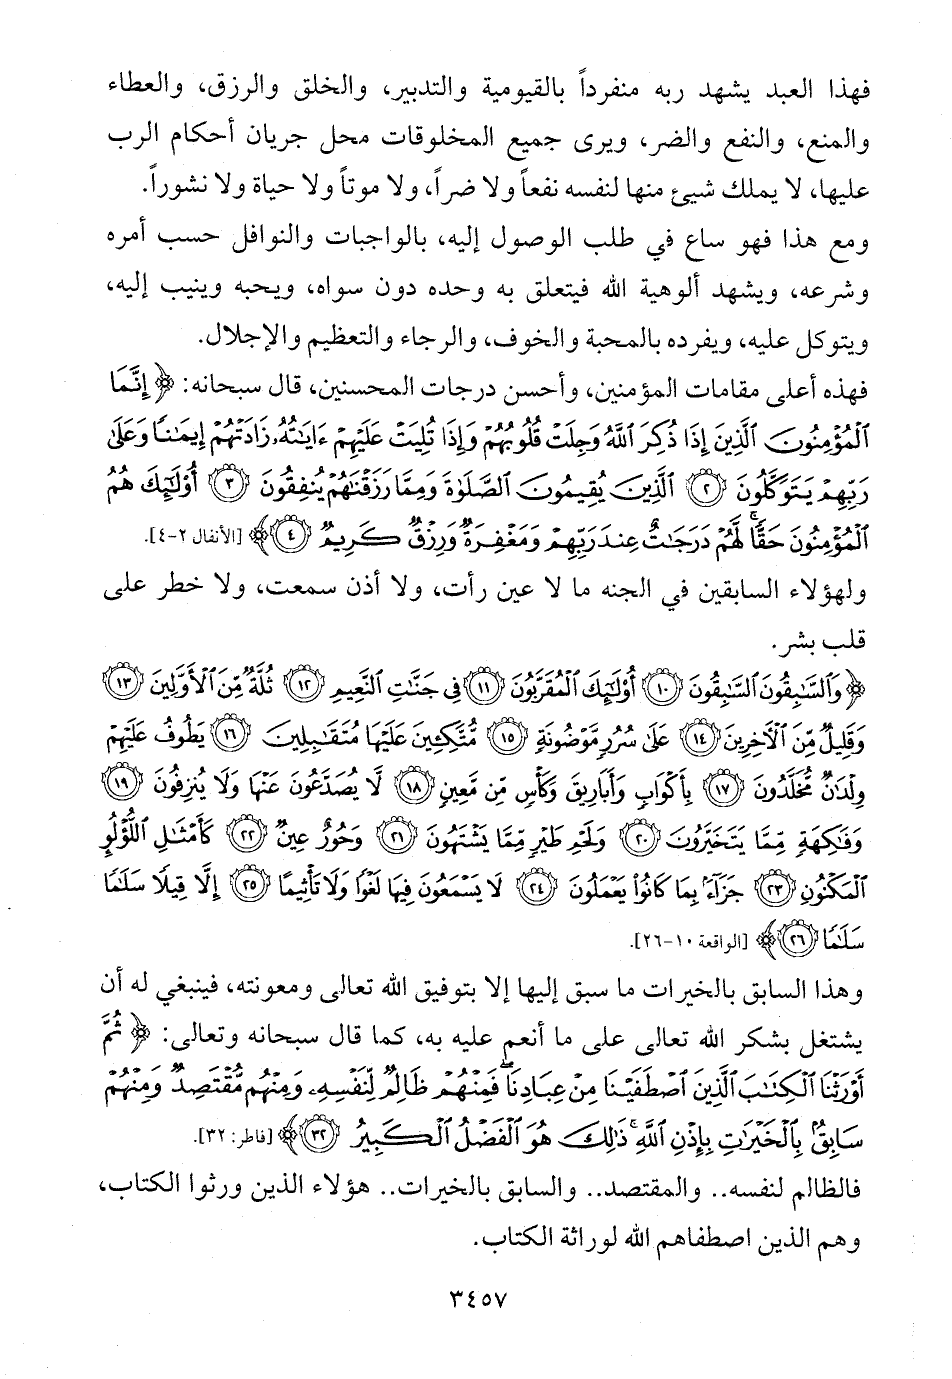 فهذا العبد يشهد ربه منفرداً بالقيومية والتدبير، والخلق والرزق، والعطاء
والمنع، والنفع والضر، ويرى جميع المخلوقات محل جريان أحكام الرب
عليها، لا يملك شيئ منها لنفسه نفعاً ولا ضراً، ولا موتاً ولا حياة ولا نشوراً.
ومع هذا فهو ساع في طلب الوصول إليه، بالواجبات والنوافل حسب أمره
وشرعه، ويشهد ألوهية الله فيتعلق به وحده دون سواه، ويحبه وينيب إليه،
ويتوكل عليه، ويفرده بالمحبة والخوف، والرجاء والتعظيم والإجلال.
فهذه أعلى مقامات المؤمنين، وأحسن درجات المحسنين، قال سبحانه: ﴿ إِنَّمَا
ٱلْمُؤْمِنُونَ ٱلَّذِينَ إِذَا ذُكِرَ ٱللَّهُ وَجِلَتْ قُلُوبُهُمْ وَإِذَا تُلِيَتْ عَلَيْهِمْ ءَايَٰتُهُۥ زَادَتْهُمْ إِيمَٰنًا وَعَلَىٰ
رَبِّهِمْ يَتَوَكَّلُونَ ٢ ٱلَّذِينَ يُقِيمُونَ ٱلصَّلَوٰةَ وَمِمَّا رَزَقْنَٰهُمْ يُنفِقُونَ ٣ أُو۟لَٰٓئِكَ هُمُ
ٱلْمُؤْمِنُونَ حَقًّا ۚ لَّهُمْ دَرَجَٰتٌ عِندَ رَبِّهِمْ وَمَغْفِرَةٌ وَرِزْقٌ كَرِيمٌ ٤ ﴾ [الأنفال ٢-٤].
ولهؤلاء السابقين في الجنه ما لا عين رأت، ولا أذن سمعت، ولا خطر على
قلب بشر.
﴿ وَٱلسَّٰبِقُونَ ٱلسَّٰبِقُونَ ١٠ أُو۟لَٰٓئِكَ ٱلْمُقَرَّبُونَ ١١ فِى جَنَّٰتِ ٱلنَّعِيمِ ١٢ ثُلَّةٌ مِّنَ ٱلْأَوَّلِينَ ١٣
وَقَلِيلٌ مِّنَ ٱلْءَاخِرِينَ ١٤ عَلَىٰ سُرُرٍ مَّوْضُونَةٍ ١٥ مُّتَّكِـِٔينَ عَلَيْهَا مُتَقَٰبِلِينَ ١٦ يَطُوفُ عَلَيْهِمْ
وِلْدَٰنٌ مُّخَلَّدُونَ ١٧ بِأَكْوَابٍ وَأَبَارِيقَ وَكَأْسٍ مِّن مَّعِينٍ ١٨ لَّا يُصَدَّعُونَ عَنْهَا وَلَا يُنزِفُونَ ١٩
وَفَٰكِهَةٍ مِّمَّا يَتَخَيَّرُونَ ٢٠ وَلَحْمِ طَيْرٍ مِّمَّا يَشْتَهُونَ ٢١ وَحُورٌ عِينٌ ٢٢ كَأَمْثَٰلِ ٱللُّؤْلُؤِ
ٱلْمَكْنُونِ ٢٣ جَزَآءًۢ بِمَا كَانُوا۟ يَعْمَلُونَ ٢٤ لَا يَسْمَعُونَ فِيهَا لَغْوًا وَلَا تَأْثِيمًا ٢٥ إِلَّا قِيلًا سَلَٰمًا
سَلَٰمًا ٢٦ ﴾ [الواقعة ١٠-٢٦].
وهذا السابق بالخيرات ما سبق إليها إلا بتوفيق الله تعالى ومعونته، فينبغي له أن
يشتغل بشكر الله تعالى على ما أنعم عليه به، كما قال سبحانه وتعالى: ﴿ ثُمَّ
أَوْرَثْنَا ٱلْكِتَٰبَ ٱلَّذِينَ ٱصْطَفَيْنَا مِنْ عِبَادِنَا ۖ فَمِنْهُمْ ظَالِمٌ لِّنَفْسِهِۦ وَمِنْهُم مُّقْتَصِدٌ وَمِنْهُمْ
سَابِقٌۢ بِٱلْخَيْرَٰتِ بِإِذْنِ ٱللَّهِ ۚ ذَٰلِكَ هُوَ ٱلْفَضْلُ ٱلْكَبِيرُ ٣٢ ﴾ [فاطر: ٣٢].
فالظالم لنفسه.. والمقتصد.. والسابق بالخيرات.. هؤلاء الذين ورثوا الكتاب،
وهم الذين اصطفاهم الله لوراثة الكتاب.
٣٤٥٧